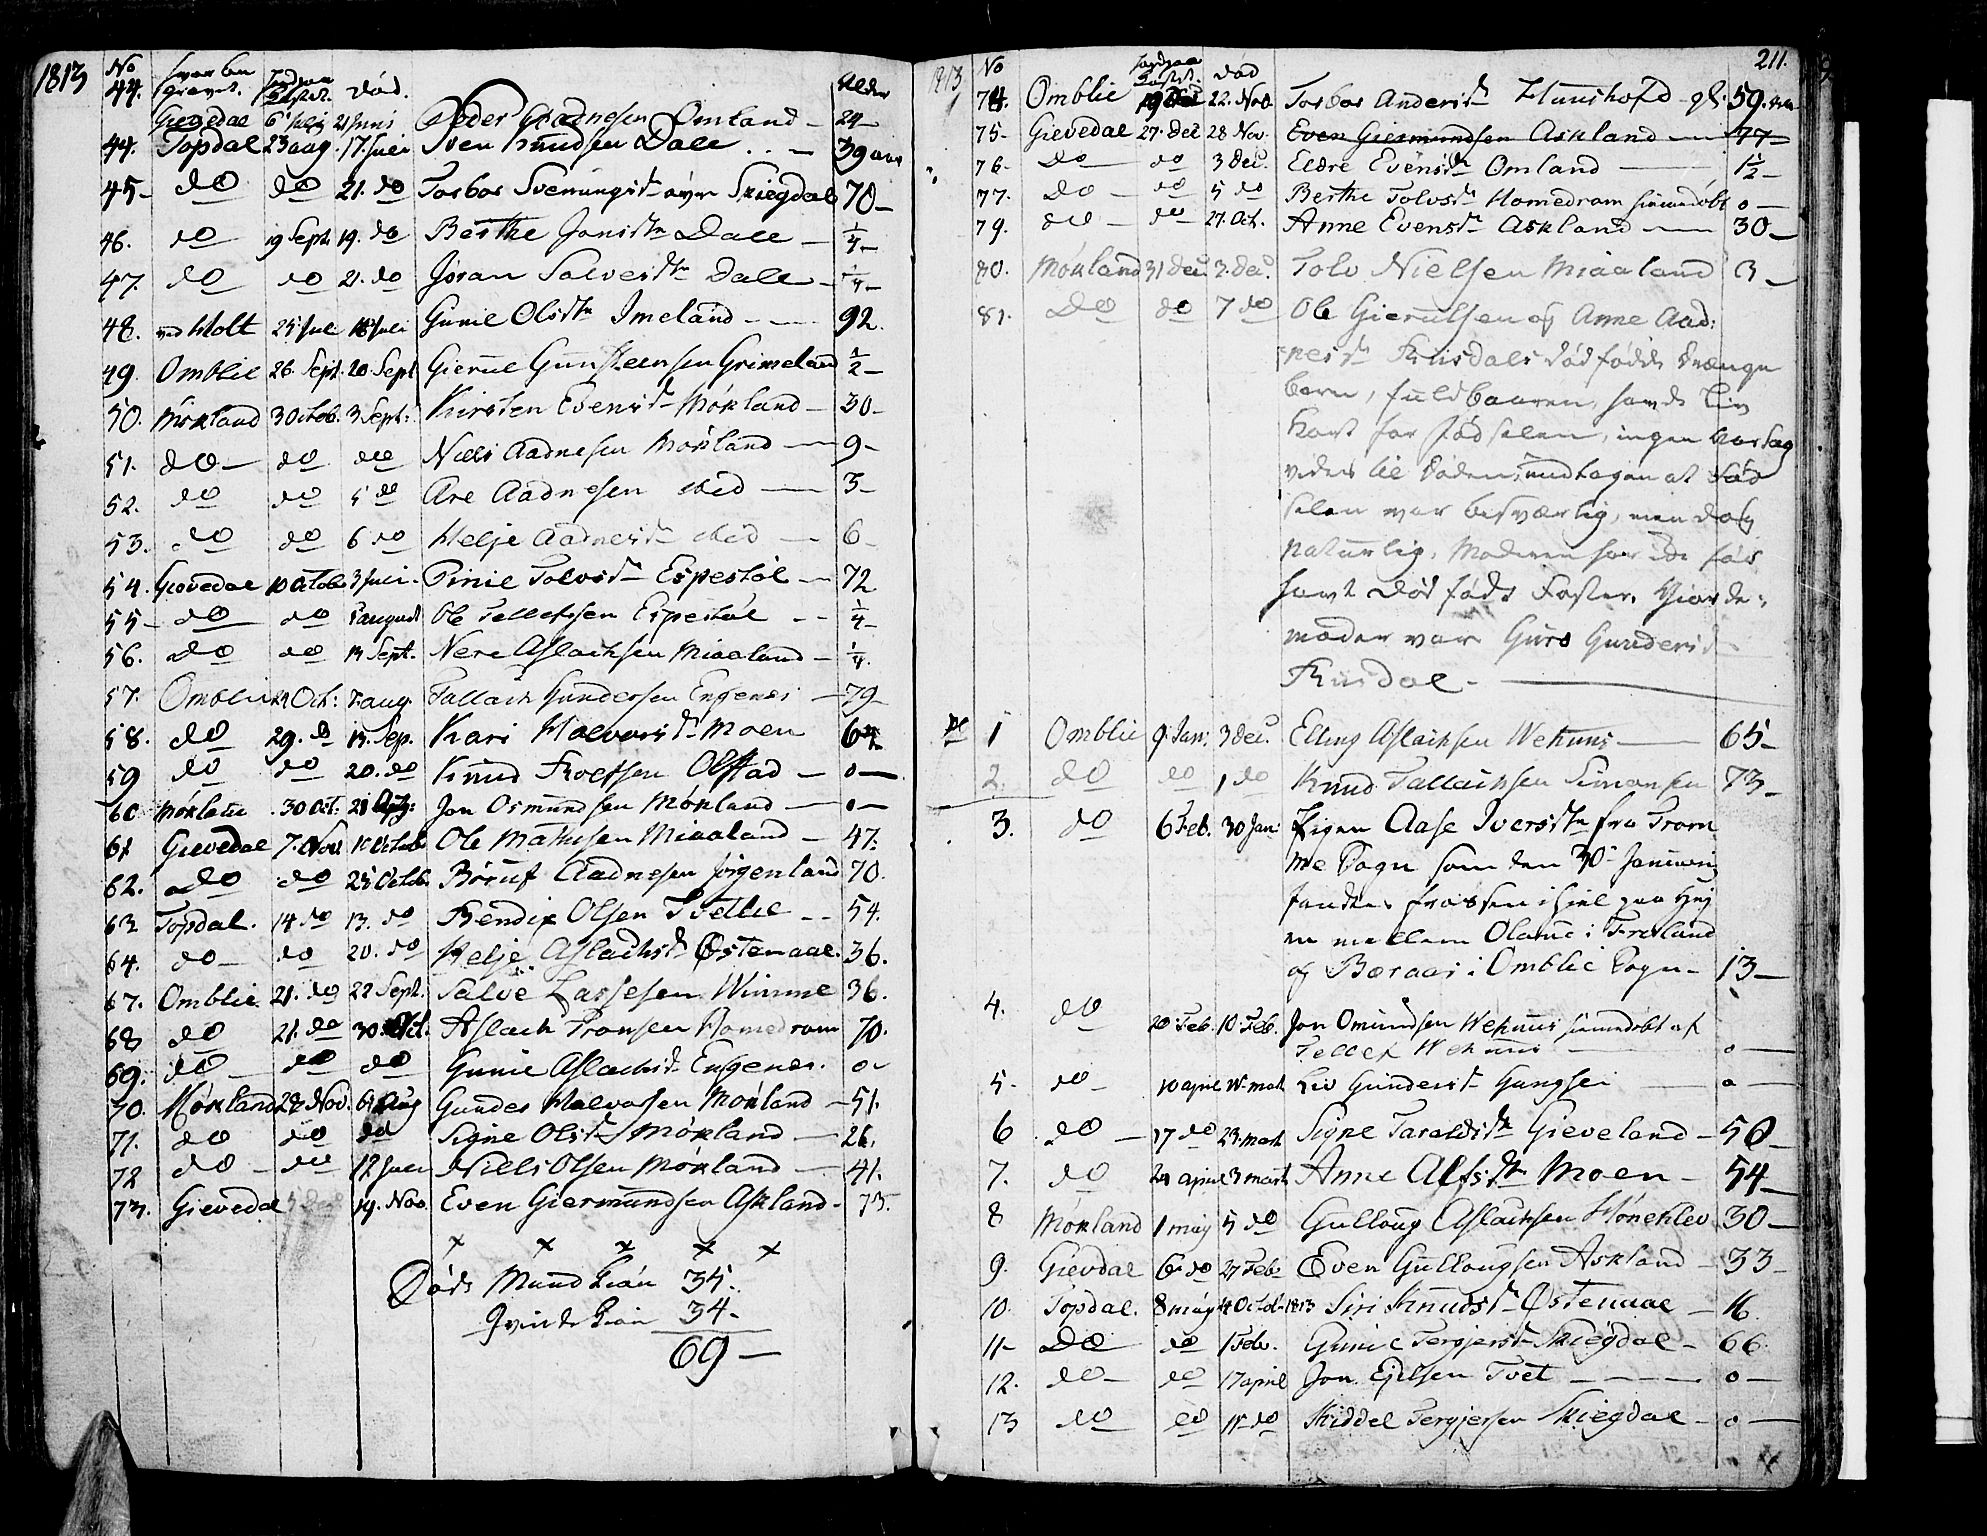 1813
No hvor be gravet. Jordpaa Kastet. død. Alder
44. Gievedal 6 Julij 21 Juni Peder Aadnesen Omland 24
44. Topdal 23 aug. 17. Juli Sven Knudsen Dale 39 aar
45 do do 21. do Torbor Svenungsdr øvre Skiegdal 70
46. do 19 Sept. 19. do Berthe Jonsdr Dale 1/4
47. do do 21. do Joran Salvesdr Dale 1/4
48. ved Holt 25 Jul 18 Juli Gunie Olsdr Imeland 92.
49. Omblie 26. Sept. 20. Sept Gierue Gunsteensen Grimeland 1/2
50. Mørland 3 Octob. 3 Sept: Kirsten Evensdr Mørland 30
51. do do do Niels Aadnesen Mørland 9
52. do do 5 do Are Aadnesen sted 3
53. do do 6 do Helje Aadnesdr sted 6
54. Giøvedal 10 Octob. 3 Juli Pinie Tolvsdr Espestøl 72
55 do do 8 august Ole Tellefsen Espestøl 1/4
56. do do 13 Sept. Nere Aslachsen Miaaland 1/4
57. Omblie 29 Oct: 7. aug. Tallach Gundersen Engenes 79
58. do 29. do 13. Sep. Kari Halvorsdr Moen 64
59 do do 20. do Knud Troelsen Olstad 0
60 Mørland 30 Oct. 21 Aug: Jon Osmundsen Mørland 0
61 Gievedal 7. Nov 10 Octob Ole Mathisen Miaaland 47.
62. do do 25 Octob. Børuf Aadnesen Jørgenland 70.
63 Topdal. 14 do 13. do Bendix Olsen Tvetlie 54.
64. do do 20. do Helje Aslachsdr Østenaae. 36.
67. Omblie 21. do 22 Sept. Salve Lassesen Wimme 36.
68 do 21. do 30. Oct. Aslach Tronsen Homedrom 70.
69. do do do Gunie Aslachsdr Engenes. 0
70. Mørland 28 Nov. 6 Aug Gunder Halvorsen Mørland 51.
71. do do do Signe Olsdr Mørland 26.
72 do do 12 Juli Niels Olsen Mørland 41.
73. Gievedal 19. Nov. Even Giermundsen Askland 73.
Døde Mand Kiøn 35.
Qvinde Kiøn 34
69
1813 211.
No Jordpaa Kastet. død
74. Omblie 19 Dec 22. Nov. Torbor Andersdr Hunshofd 59.
75 Gievedal 27. Dec 28 Nov. Even Giermundsen Askland 77
76 do do 3 Dec. Eldre Evensdr Omland 1 1/2
77. do do 5 do Berthe Tolvsdr Homedrom hiemdøbt 0
79. do do 27. Oct. Anne Evensdr Askland 30
80. Mørland 31 Dec. 3. Dec. Tolv Nielsen Miaaland 3
81. do do 7 do Ole Gierulsen og Anne Aad:
nesdr Trusdals dødfødde Drænge
barn, fuldbaaren, havde Liv
kort før Fødselen, ingen aarsag
vides til Døden, undtagen at Fød
selen var besværlig, men dog
naturlig. Moderen har ikke før
havt død født Foster. Giorde:
moder var Guro Gundersdr
Trusdal
1 Omblie 9. Jan. 3 Dec. Elling Aslachsen Wehuus 65
2. do do 1 do Knud Tallachsen Simonsen 73
3. do 6 Feb. 30 Jan. Pigen Aase Iversdr fra Trom
me Sogn som den 30 Januarij
fandtes frossen ihiel paa Hej
en mellem Olaune i Froland
og Baraas i Omblie Sogn 13
4. do 20. Feb. 10. Feb. Jon Omundsen Wehuus hiemdøbt af
Tellef Wehuus 0
5. do 10 april 18. mart Liv Gundersdr Haugsei 0
6 do 17 do 23. mart Signe Taraldsdr Gieveland 50
7. do 24 april 3 mart Anne Alfsdr Moen 54
8 Mørland 1 maj 5 do Gulloug Aslachsen Høneklev 30
9. Gievdal 6 do 27 Feb. Even Gullougsen Askland 33
10. Topdal. 8 maj 14 Octob 1813 Siri Knudsdr Østenaae 16
11 do do 1 Feb. Gunie Tergjersdr Skiegdal 66.
12. do do 17 april Jon Ejelsen Tvet 0
13 do do 18 do Kiddel Tergjersen Skiegdal 0